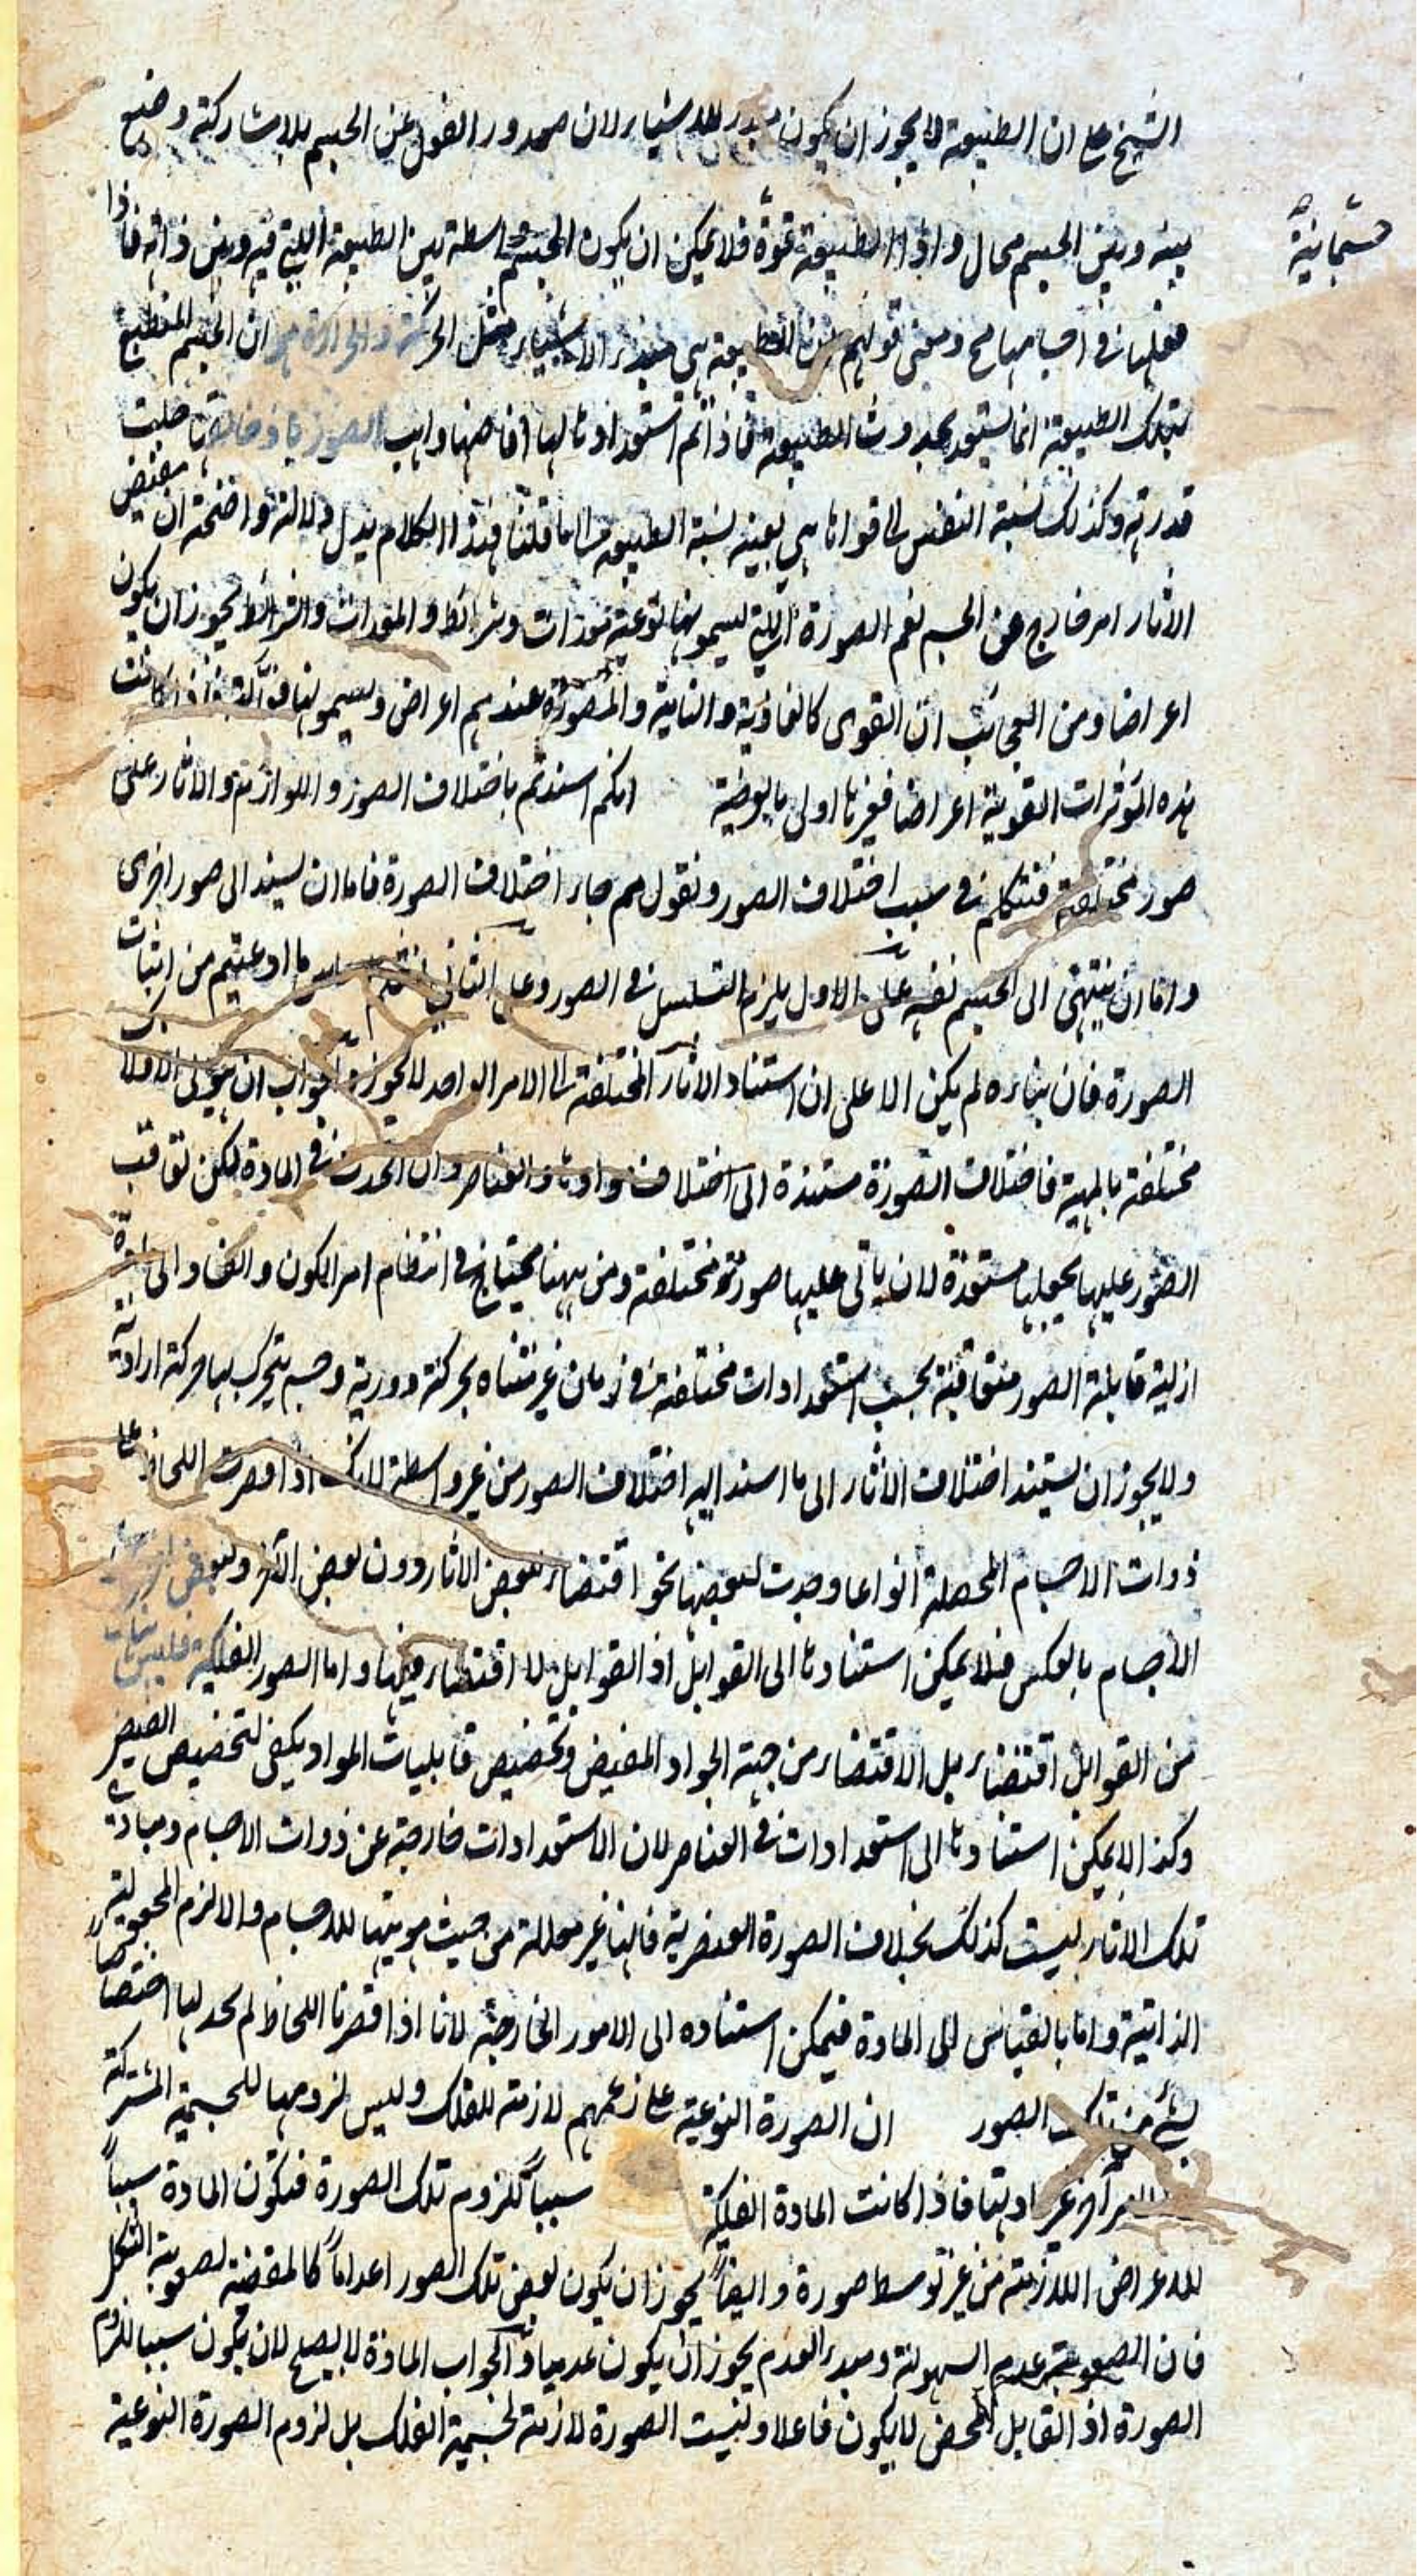 الشيخ على ان الطبيعة لا يجوز ان يكون مبدء للاشياء لان صدور الفعل عن الجسم بلا مشاركة وضع
بينه وبين الجسم محال واذا الطبيعة قوة جسمانية فلا يمكن ان يكون الجسم واسطة بين الطبيعة اللتي فيه وبين ذاته فاذا
فعلها في اجسامها مح ومعنى قولهم ان الطبيعة هي مبدء الاشياء مثل الحركة والحرارة هو ان الجسم المنطبع
بتلك الطبيعة انما يستعد بحدوث الطبيعة فاذا تم استعداده لها افاضها واهب الصور باذن خالقه جلت
قدرته وكذلك نسبة النفس الى قواها هي بعينه نسبة الطبيعة الى ما قلنا فهذا الكلام يدل دلالة واضحة ان مفيض
الاثار امر خارج عن الجسم نعم الصورة اللتي يسمونها نوعية معدات وشرائط والمعدات والشرائط يجوز ان يكون
اعراضا ومن العجائب ان القوى كالغاذية والنامية والمصورة عندهم اعراض ويسمونها فعالة فاذا كانت
هذه المؤثرات القوية اعراضا فغيرها اولى بالعرضية انكم اسندتم باختلاف الصور واللوازم والاثار على
صور مختلفة فنتكلم في سبب اختلاف الصور ونقول لم جاء اختلاف الصورة فاما ان يسند الى صور اخرى
واما ان ينتهى الى الجسم نفسه على الاول يلزم التسلسل في الصور وعلى الثاني ما ادعيتم من اثبات
الصورة فان بناءه لم يكن الا على ان استناد الاثار المختلفة الى الامر الواحد لا يجوز الجواب ان هيولى الافلاك
مختلفة بالمهية فاختلاف الصورة مستندة الى اختلاف موادها والعناصر وان اتحدت في المادة لكن تعاقب
الصور عليها يجعلها مستعدة لان ياتى عليها صورة مختلفة ومن ههنا يحتاج في انتظام امر الكون والفساد الى مادة
ازلية قابلة الصور متعاقبة بحسب استعدادات مختلفة في زمان غير متناه بحركة دورية وجسم يتحرك بها حركة ارادية
ولا يجوز ان يستند اختلاف الاثار الى ما اسند اليه اختلاف الصور من غير واسطة لانك اذا قصرت اللحاظ على
ذوات الاجسام المحصلة انواعا وجدت لبعضها نحوا اقتضاء لبعض الاثار دون بعض اخر ولبعض اخر من
الاجسام بالعكس فلا يمكن استنادها الى القوابل اذ القوابل لا اقتضاء فيها واما الصور الفلكية فليس هناك
من القوابل اقتضاء بل الاقتضاء من جهة الجواد المفيض وتخصيص قابليات المواد يكفى لتخصيص الفيض
وكذا لا يمكن استنادها الى استعدادات في العناصر لان الاستعدادات خارجة عن ذوات الاجسام ومبادى
تلك الاثار ليست كذلك بخلاف الصورة العنصرية فانها غير معللة من حيث هويتها للاجسام والا لزم المجعولية
الذاتية واما بالقياس الى المادة فيمكن استناده الى الامور الخارجية لانا اذا قصرنا اللحاظ لم نجد لها اختصاصا
بشئ من تلك الصور ان الصورة النوعية على زعمهم لازمة للفلك وليس لزومها للجسمية المشتركة
ولا لامر اخر غير مادتها فاذا كانت المادة الفلكية سببا للزوم تلك الصورة فتكون المادة سببا
للاعراض اللازمة من غير توسط صورة وايضا يجوز ان يكون بعض تلك الصور اعداما كالمقتضية لصعوبة التشكل
فان الصعوبة عدم السهولة ومبدء العدم يجوز ان يكون عدميا والجواب المادة لا يصلح لان يكون سببا للزوم
الصورة اذ القابل المحض لا يكون فاعلا وليست الصورة لازمة لجسمية الفلك بل لزوم الصورة النوعية